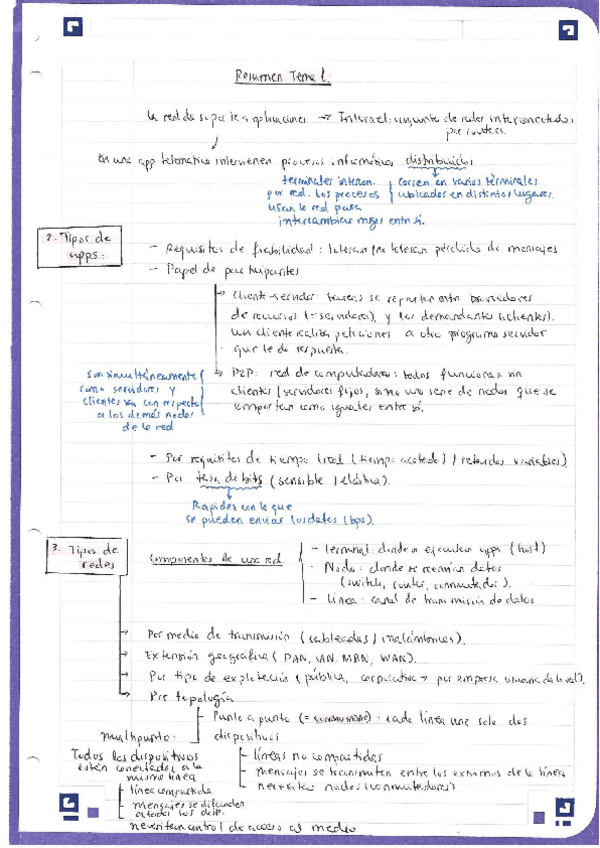 Resumen Tema 1.
La red da soporte a aplicaciones → Internet: conjunto de redes interconectadas
por routers.
En una app telemática intervienen procesos informáticos distribuidos
terminales intercon.
por red. Los procesos
usan la red para
intercambiar msjes entre sí.
corren en varios terminales
ubicados en distintos lugares.
2. Tipos de
apps:
- Requisitos de fiabilidad: toleran/no toleran pérdida de mensajes
- Papel de participantes
Cliente-servidor: tareas se reparten entre proveedores
de recursos (= servidores), y los demandantes (clientes).
Un cliente realiza peticiones a otro programa servidor
que le da respuesta.
P2P: red de computadores: todos funcionan sin
clientes/servidores fijos, sino una serie de nodos que se
comportan como iguales entre sí.
son simultáneamente
como servidores y
clientes con respecto
a los demás nodos
de la red
- Por requisitos de tiempo (real (tiempo acotado) / retardos variables).
- Por tasa de bits (sensible / elástica).
Rapidez con la que
se pueden enviar los datos (bps).
3. Tipos de
redes
Componentes de una red
- Terminal: donde se ejecutan apps (host)
- Nodo: donde se reenvían datos
(switch, router, conmutador).
- Línea: canal de transmisión de datos
Por medio de transmisión (cableadas / inalámbricas).
Extensión geográfica (PAN, LAN, MAN, WAN).
Por tipo de explotación (pública, corporativa → por empresa usuaria de la red).
Por topología
- Punto a punto (= conmutada): cada línea une solo dos
dispositivos
- líneas no compartidas
- mensajes se transmiten entre los extremos de la línea
- necesitan nodos (conmutadores)
multipunto:
Todos los dispositivos
están conectados a la
misma línea
- línea compartida
- mensajes se difunden
a todos los disp.
necesitan control de acceso al medio